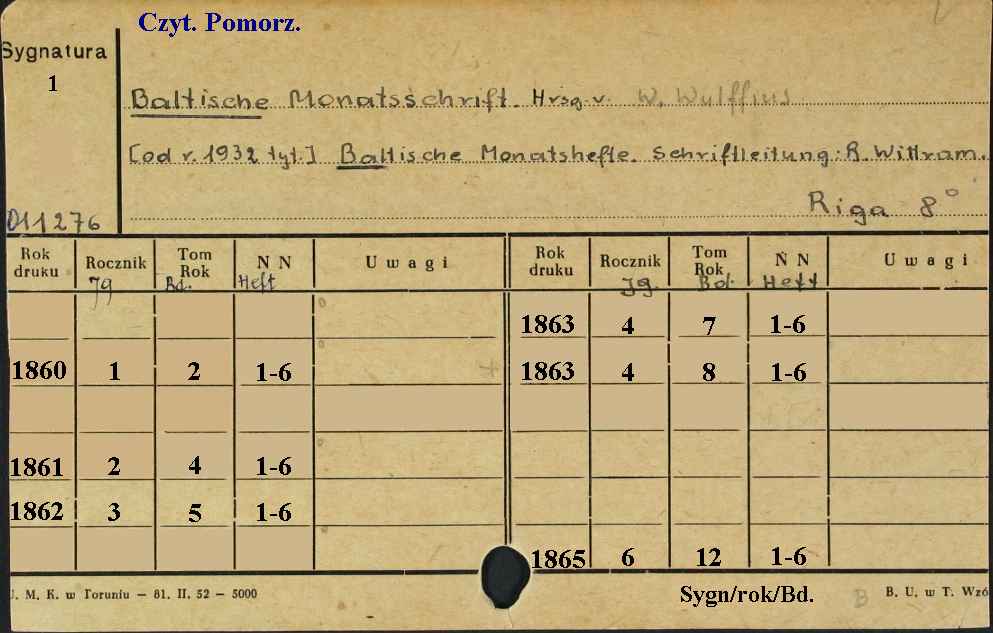 Czyt. Pomorz.
Sygnatura
1
Baltische Monatsschrift. Hrsg. v. W. Wulffius
[od r. 1932 tyt.] Baltische Monatshefte. Schriftleitung: R. Wittram.
Riga 8°
011276
Rok druku Rocznik Tom Rok N N Uwagi Rok druku Rocznik Tom Rok N N Uwagi
Jg Bd. Heft Jg. Bd. Heft
1863 4 7 1-6
1860 1 2 1-6 1863 4 8 1-6
1861 2 4 1-6
1862 3 5 1-6
1865 6 12 1-6
J. M. K. w Toruniu — 81. II. 52 — 5000 Sygn/rok/Bd. B B. U. w T. Wzó